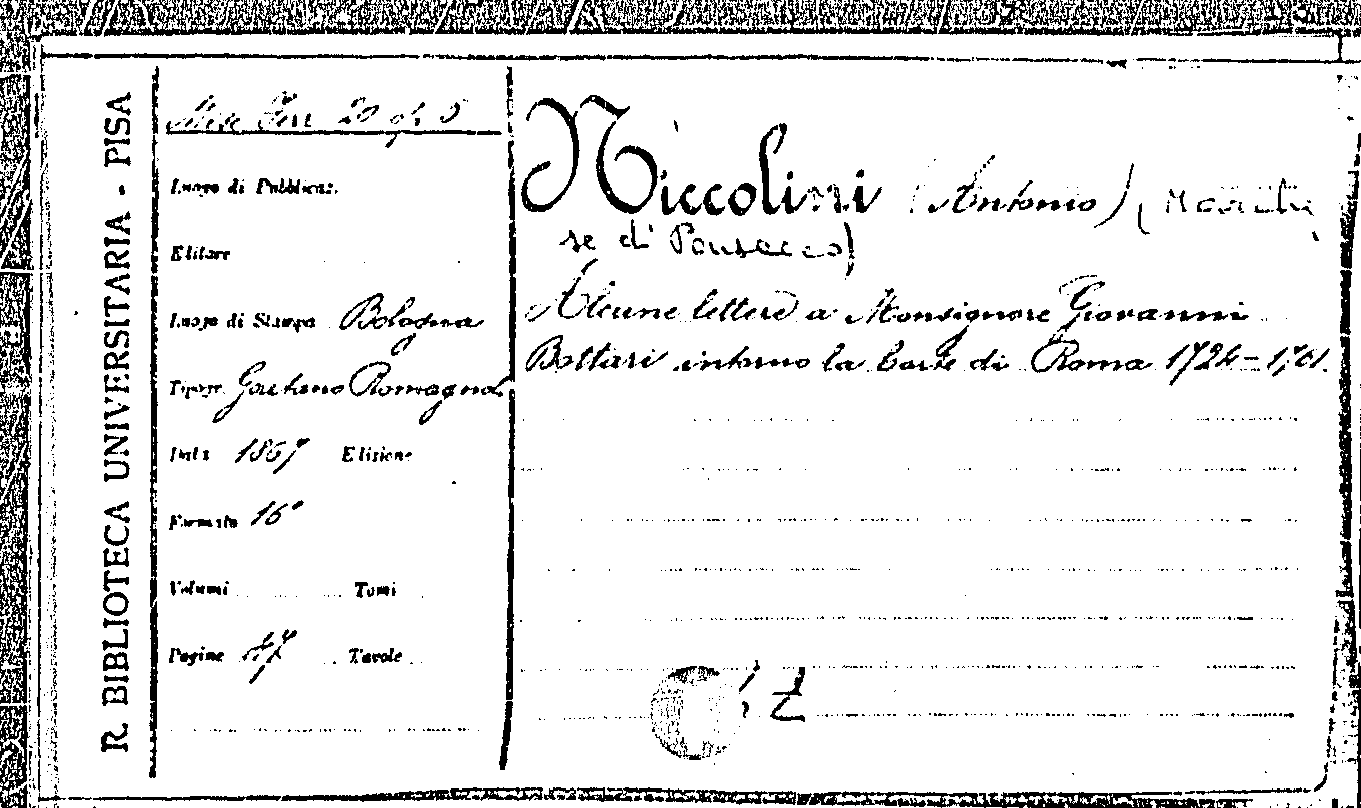 R. BIBLIOTECA UNIVERSITARIA - PISA
Misc Ferr 20 op. 5
Luogo di Pubblicaz.
Editore
Luogo di Stampa Bologna
Tipogr. Gaetano Romagnoli
Data 1867 Edizione
Formato 16°
Volumi Tomi
Pagine 47 Tavole
Niccolini (Antonio) (Marche
se di Ponsacco)
Alcune lettere a Monsignore Giovanni
Bottari intorno la Corte di Roma 1724-1761.